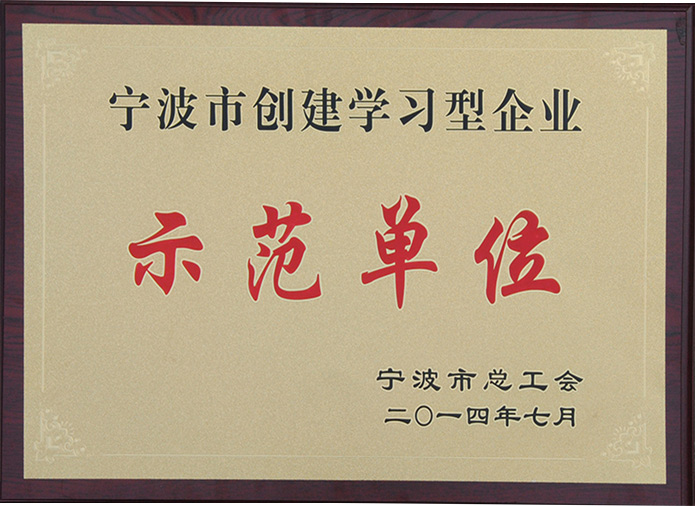 宁波市创建学习型企业
示范单位
宁波市总工会
二〇一四年七月